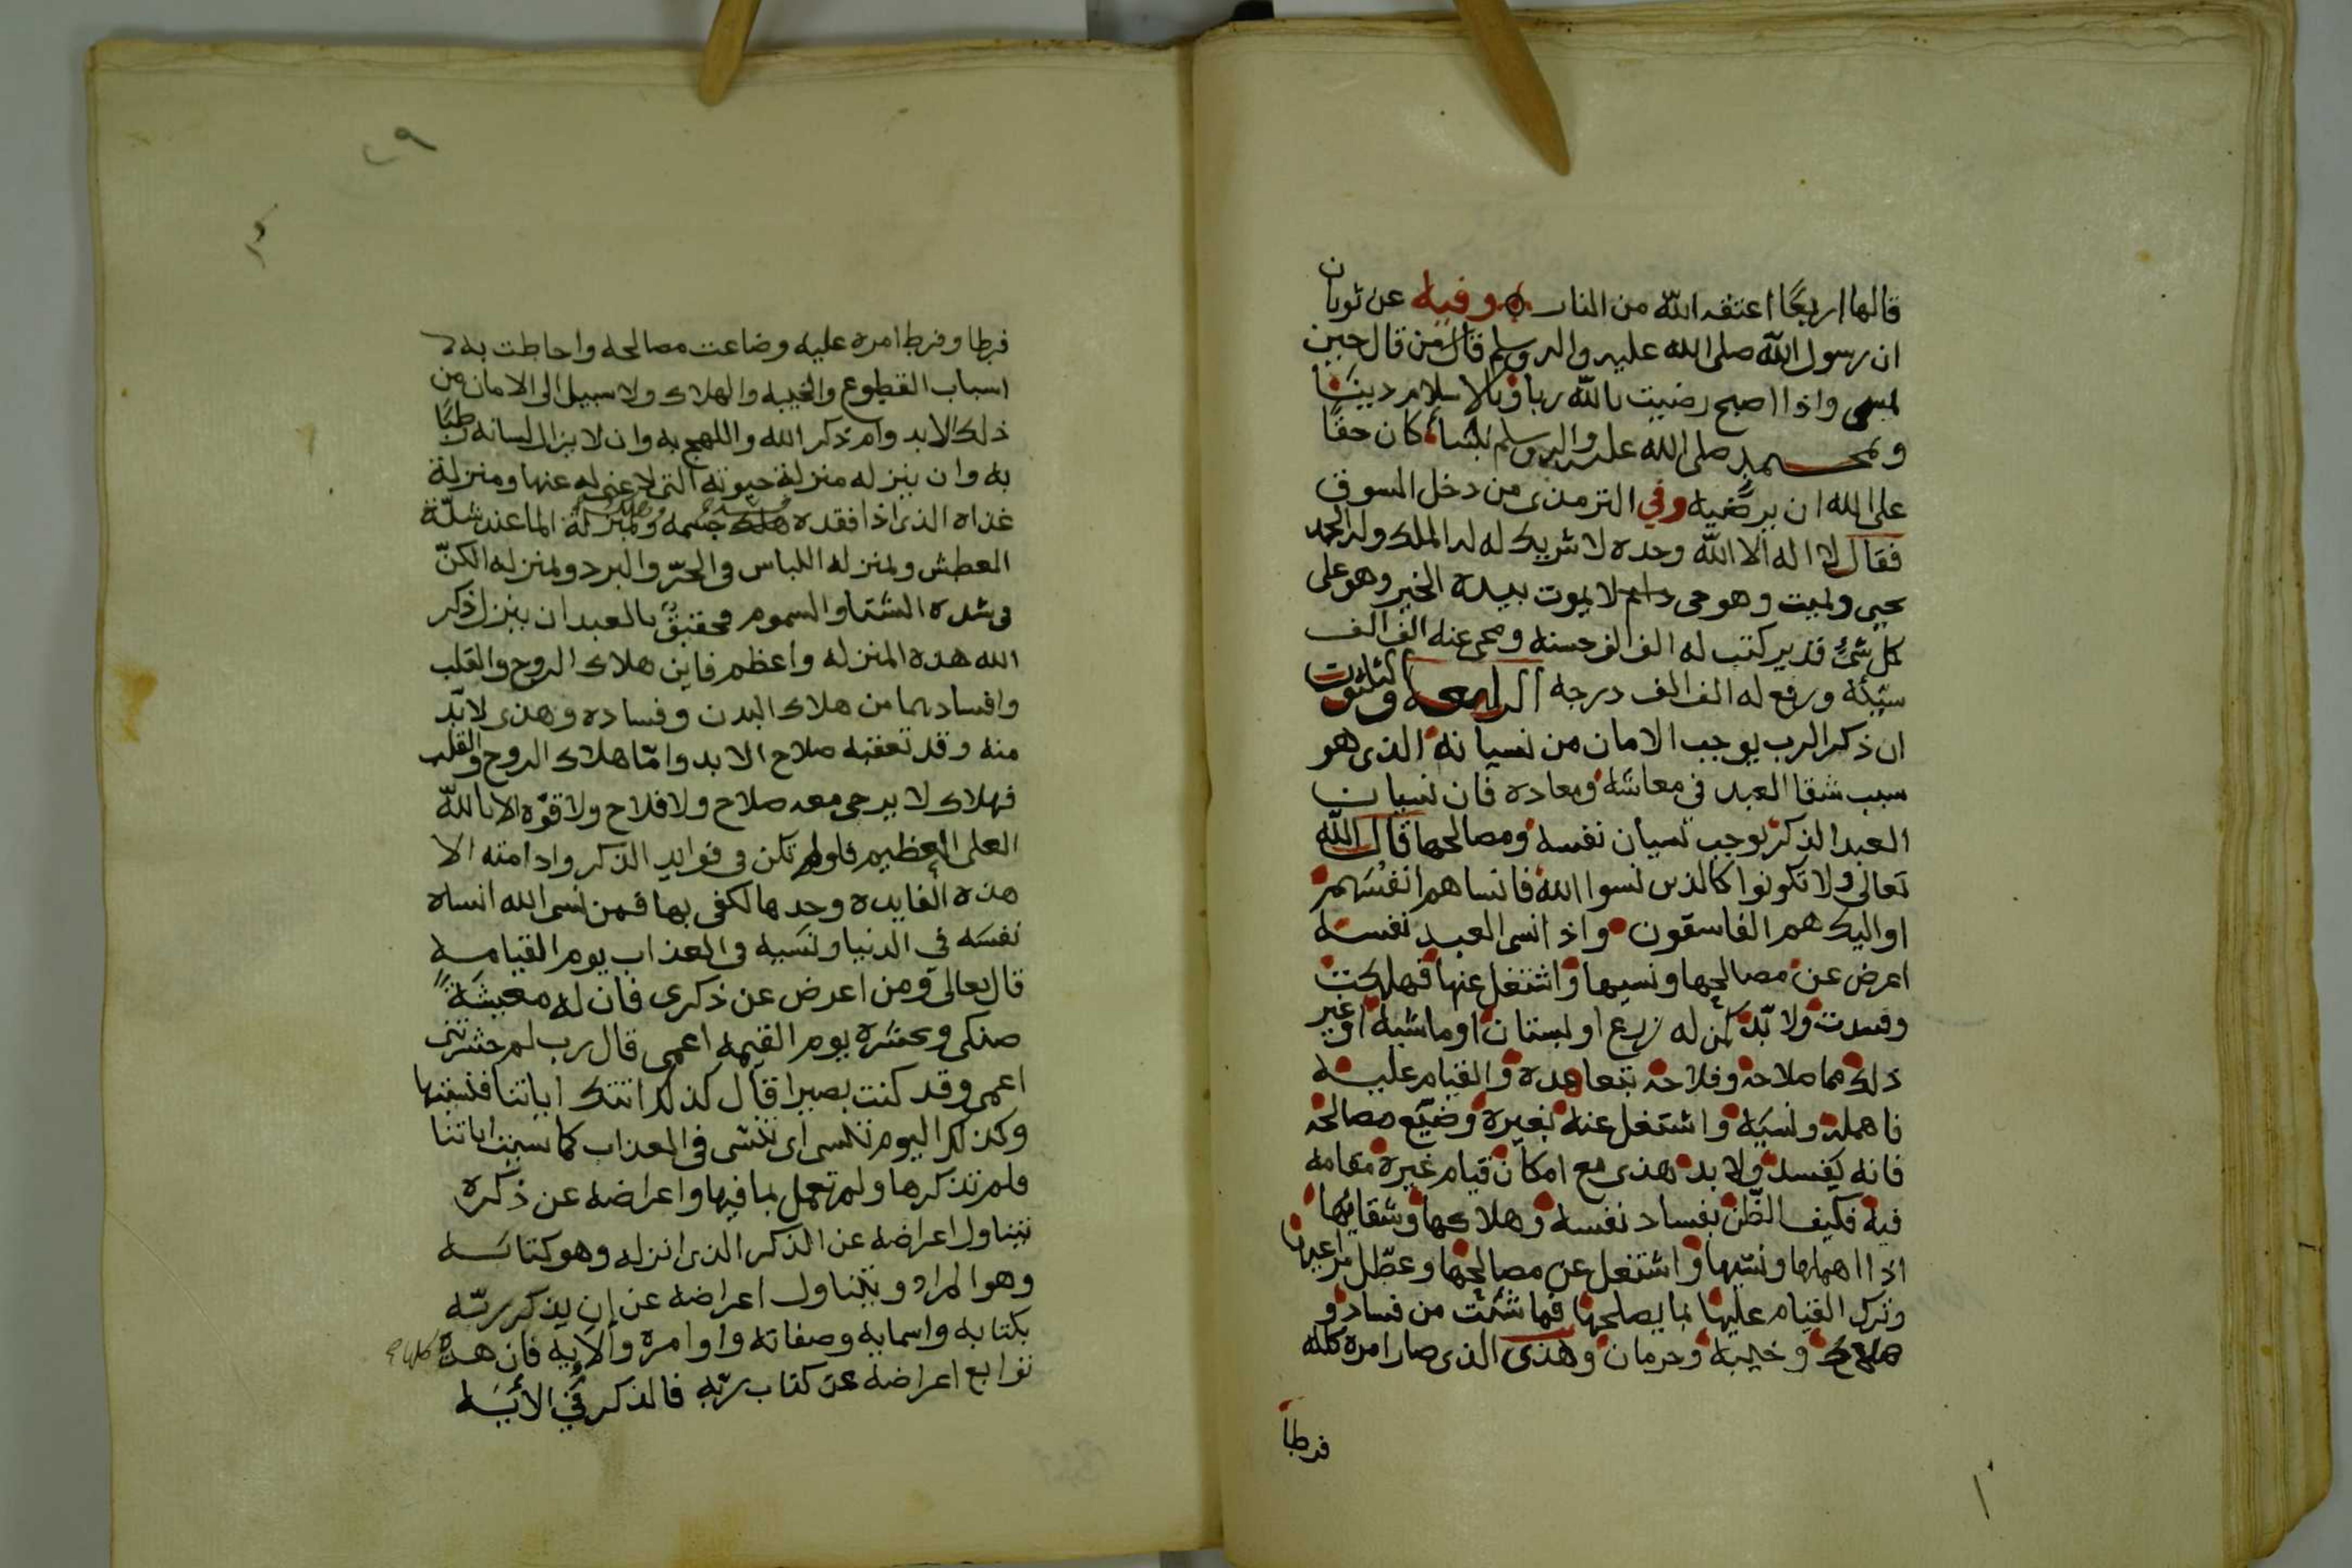 قالها اربعًا اعتقه الله من النار وفيه عن ثوبان
ان رسول الله صلى الله عليه واله وسلم قال من قال حين
يمسى واذا اصبح رضيت بالله ربا وبالاسلام دينًا
وبمحمد صلى الله عليه واله وسلم نبيا كان حقًا
على الله ان يرضيه وفي الترمذى من دخل السوق
فقال لا اله الا الله وحده لا شريك له له الملك وله الحمد
يحيى ويميت وهو حى دايم لا يموت بيده الخير وهو على
كل شئ قدير كتب له الف الف حسنه ومحى عنه الف الف
سيئه ورفع له الف الف درجه الرابعه والثلاثون
ان ذكر الرب يوجب الامان من نسيانه الذى هو
سبب شقا العبد في معاشه ومعاده فان نسيان
العبد الذكر يوجب نسيان نفسه ومصالحها قال الله
تعالى ولا تكونوا كالذين نسوا الله فانساهم انفسهم
اوليك هم الفاسقون واذا نسى العبد نفسه
اعرض عن مصالحها ونسيها واشتغل عنها فهلكت
وفسدت ولا بد كمن له زرع او بستان او ماشيه او غير
ذلك مما صلاحه وفلاحه بتعاهده والقيام عليه
فاهمله ونسيه واشتغل عنه بغيره وضيع مصالحه
فانه يفسد ولا بد هذى مع امكان قيام غيره مقامه
فيه فكيف الظن بفساد نفسه وهلاكها وشقائها
اذا اهملها ونسيها واشتغل عن مصالحها وعطل مراعاتها
وترك القيام عليها بما يصلحها فما شئت من فساد و
هلاك وخيبه وحرمان وهذى الذى صار امره كله
فرطا
٤٩
فرطا وفرط امره عليه وضاعت مصالحه واحاطت به
اسباب القطوع والخيبه والهلاك ولا سبيل الى الامان من
ذلك الا بدوام ذكر الله واللهج به وان لا يزال لسانه رطبًا
به وان ينزله منزلة حيوته التى لا غنى له عنها ومنزلة
غذاه الذى اذا فقده هلك جسمه وبمنزلة الما عند شدّة
العطش وبمنزله اللباس فى الحرّ والبرد وبمنزله الكنّ
فى شدة الشتا والسموم فحقيق بالعبد ان ينزل ذكر
الله هذه المنزله واعظم فاين هلاك الروح والقلب
وافسادهما من هلاك البدن وفساده وهذى لا بدّ
منه وقد تعقبه صلاح الابد وامّا هلاك الروح والقلب
فهلاك لا يرجى معه صلاح ولا فلاح ولا قوّه الا بالله
العلى العظيم فلو لم تكن فى فوايد الذكر وادامته الا
هذه الفايده وحدها لكفى بها فمن نسى الله انساه
نفسَه في الدنيا ونسَيه فى العذاب يوم القيامه
قال تعالى ومن اعرض عن ذكرى فان له معيشةً
ضنكى ونحشره يوم القيمه اعمى قال رب لم حشرتنى
اعمى وقد كنت بصيرا قال كذلك اتتك اياتنا فنسيتها
وكذلك اليوم تنسى اى تنسى فى العذاب كما نسيت اياتنا
فلم تذكرها ولم تعمل بما فيها واعراضه عن ذكره
يتناول اعراضه عن الذكر الذى انزله وهو كتابه
وهو المراد ويتناول اعراضه عن ان يذكر ربّه
بكتابه واسمايه وصفاته واوامره والايه فان هذه كلها
توابع اعراضه عن كتاب ربّه فالذكر في الأيه